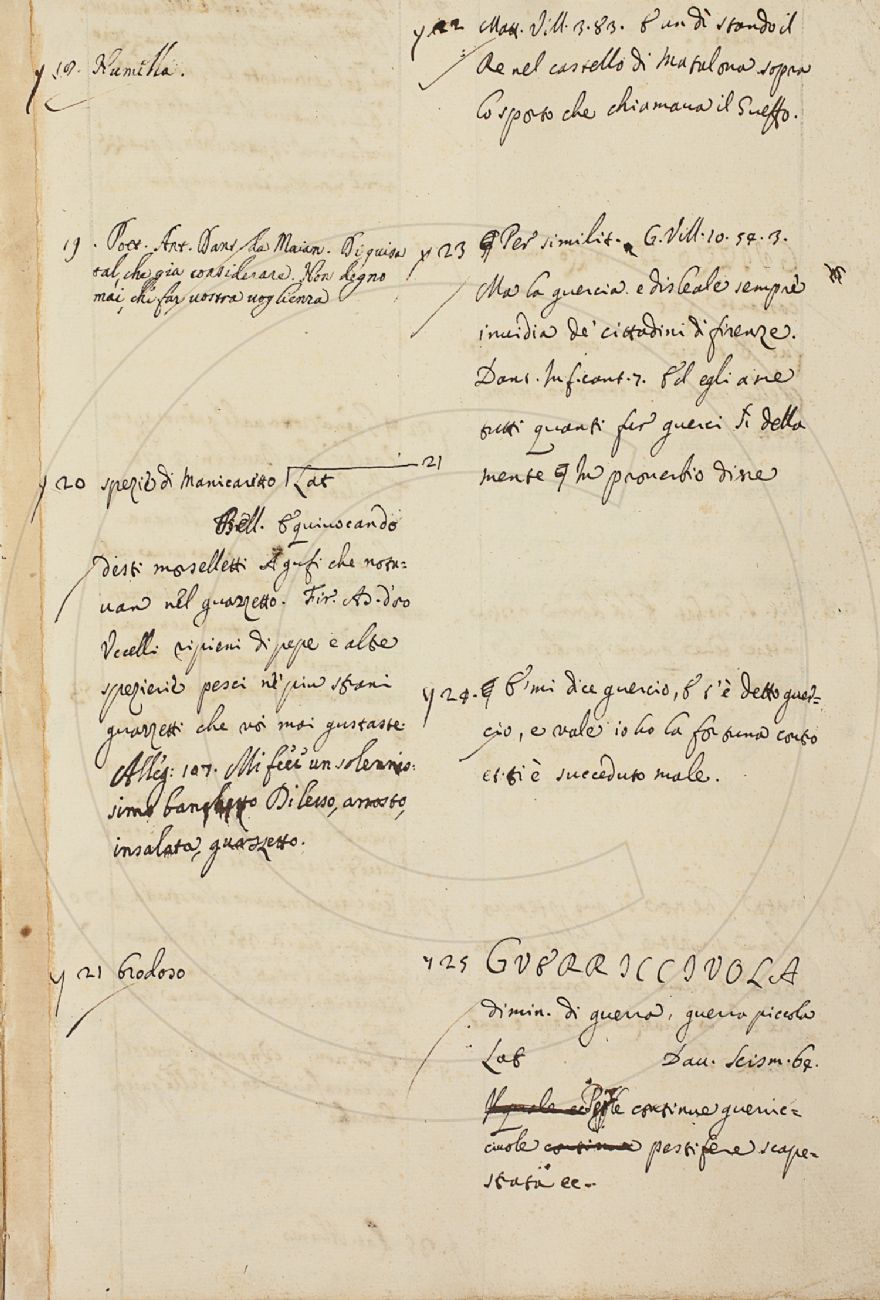 y 18. Humilta.
19. Poet. Ant. Dant. da Maian. Di guisa
tal, che gia considerare. Non degno
mai, chi far vostra voglienza
y 20 spezie di manicaretto Lat 21
Bell. Equivocando
desti moselletti A gufi che notа=
van nel guazzetto. Fir. As. d'oro
Uccelli ripieni di pepe e altre
spezierie pesci ne' piu strani
guazzetti che voi mai gustaste
Alleg: 107. Mi fece un solennis:
simo banchetto Di lesso, arrosto,
insalata, guazzetto.
y 21 brodoso
y 22 Matt. Vill. 3. 83. E un dì stando il
Re nel castello di Matalona sopra
lo sporto che chiamava il Gueffo.
y 23 Per similit. G. Vill. 10. 54. 3.
Ma la guercia e disleale sempre
invidia de' cittadini di firenze.
Dant. Inf. cant. 7. Ed egli a me
tutti quanti fur guerci Sì della
mente In proverbio disse
y 24. E' mi dice guercio, E s'è detto guer=
cio, e vale io ho la fortuna conto
et ti è succeduto male.
y 25 GUERRICCIUOLA
dimin. di guerra, guerra piccola
Lat Dav. Scism. 64.
continue guerric=
ciuole continue pestifere scape=
strata ec.